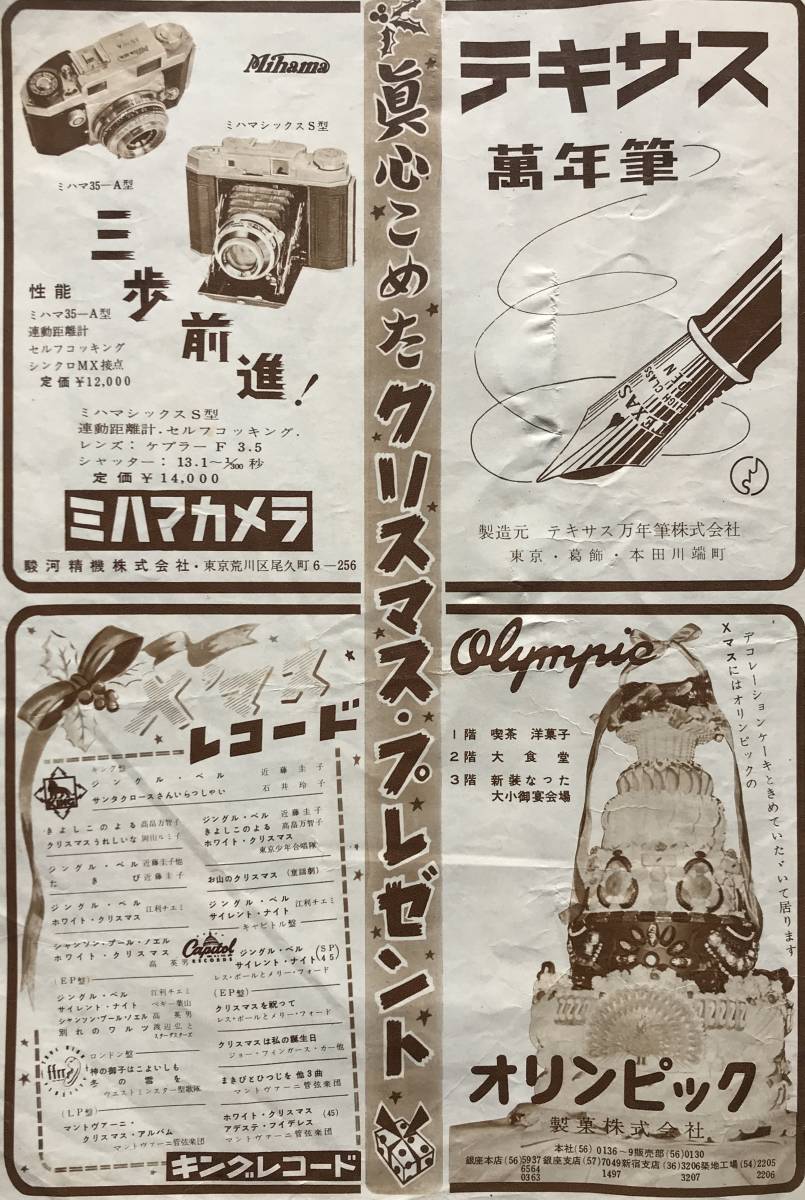 眞心こめたクリスマス・プレゼント
Mihama
ミハマシックスS型
ミハマ35－A型
三歩前進！
性能
ミハマ35－A型
連動距離計
セルフコッキング
シンクロMX接点
定価￥12,000
ミハマシックスS型
連動距離計．セルフコッキング．
レンズ：ケプラー F 3.5
シャッター：13.1～1/300 秒
定価￥14,000
ミハマカメラ
駿河精機株式会社・東京荒川区尾久町6－256
テキサス
萬年筆
TEXAS
HIGH CLASS
PEN
製造元　テキサス万年筆株式会社
東京・葛飾・本田川端町
X'マス
レコード
キング盤
KING
ジングル・ベル　近藤圭子
サンタクロースさんいらつしやい　石井玲子
きよしこのよる　高畠万智子
クリスマスうれしいな　岡山ルミ子
ジングル・ベル　近藤圭子他
たきび　近藤圭子
ジングル・ベル
ホワイト・クリスマス　江利チエミ
シャンソン・プール・ノエル
ホワイト・クリスマス　高英男
(EP盤)
ジングル・ベル　江利チエミ
サイレント・ナイト　ペギー葉山
シャンソン・プール・ノエル　高英男
別れのワルツ　渡辺弘とスターダスターズ
ロンドン盤
ffrr
神の御子はこよいしも
冬の雪を
ウエストミンスター聖歌隊
(LP盤)
マントヴァーニ・
クリスマス・アルバム
マントヴァーニ管弦楽団
ジングル・ベル　近藤圭子
きよしこのよる　高畠万智子
ホワイト・クリスマス
東京少年合唱隊
お山のクリスマス　(童謡劇)
ジングル・ベル
サイレント・ナイト　江利チエミ
キャピトル盤
Capitol
RECORDS
ジングル・ベル　(SP)
サイレント・ナイト　(45)
レス・ポールとメリー・フォード
(EP盤)
クリスマスを祝つて
レス・ポールとメリー・フォード
クリスマスは私の誕生日
ジョー・フィンガース・カー他
まきびとひつじを 他3曲
マントヴァーニ管弦楽団
ホワイト・クリスマス　(45)
アデステ・フイデレス
マントヴァーニ管弦楽団
キングレコード
Olympic
デコレーションケーキときめていたゞいて居ります
Xマスにはオリンピックの
1階　喫茶　洋菓子
2階　大食堂
3階　新装なつた
大小御宴会場
オリンピック
製菓株式会社
本社(56) 0136～9販売部(56)0130
銀座本店(56)5937 銀座支店(57)7049新宿支店(36)3206築地工場(54)2205
6564　1497　3207　2206
0363